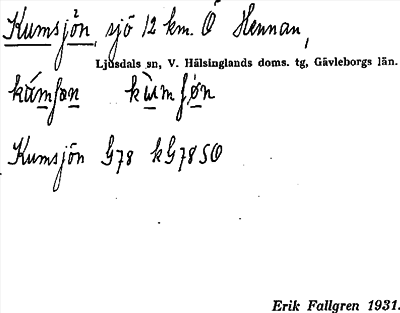 Kumsjön, sjö 12 km. Ö Hennan,
Ljusdals sn, V. Hälsinglands doms. tg, Gävleborgs län.
Kumsjön G78 kG78SO
Erik Fallgren 1931.